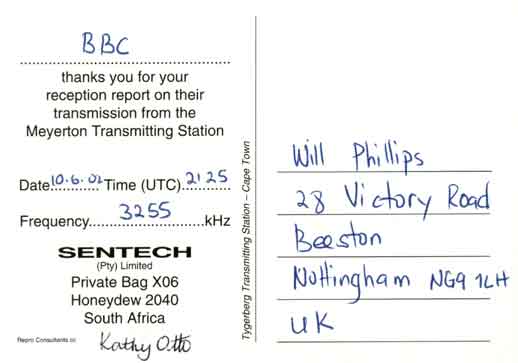 BBC
thanks you for your
reception report on their
transmission from the
Meyerton Transmitting Station
Date 10.6.02 Time (UTC) 2125
Frequency 3255 kHz
SENTECH
(Pty) Limited
Private Bag X06
Honeydew 2040
South Africa
Repro Consultants cc
Kathy Otto
Tygerberg Transmitting Station – Cape Town
Will Phillips
28 Victory Road
Beeston
Nottingham NG9 1LH
UK